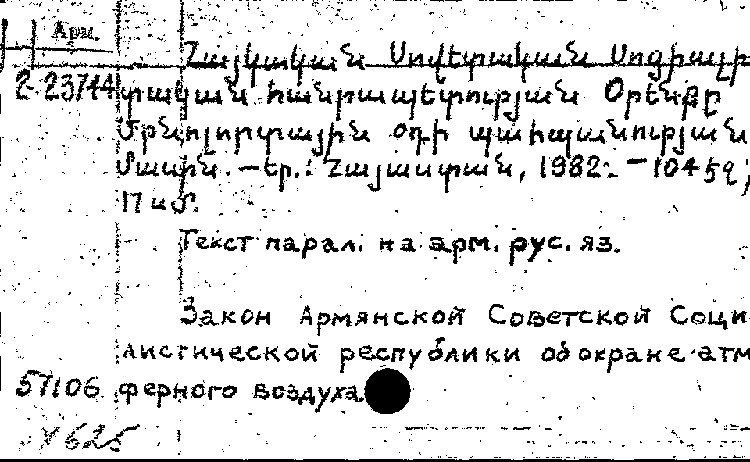 Арм.
Հայկական Սովետական Սոցիալի
2-23744 տական հանրապետության Օրենքը
Մթնոլորտային օդի պահպանության
մասին. — Եր.: Հայաստան, 1982. — 104 էջ;
17 սմ.
Текст парал. на арм. рус. яз.
Закон Армянской Советской Соци
листической республики об охране атм
57106 ферного воздуха
У 625